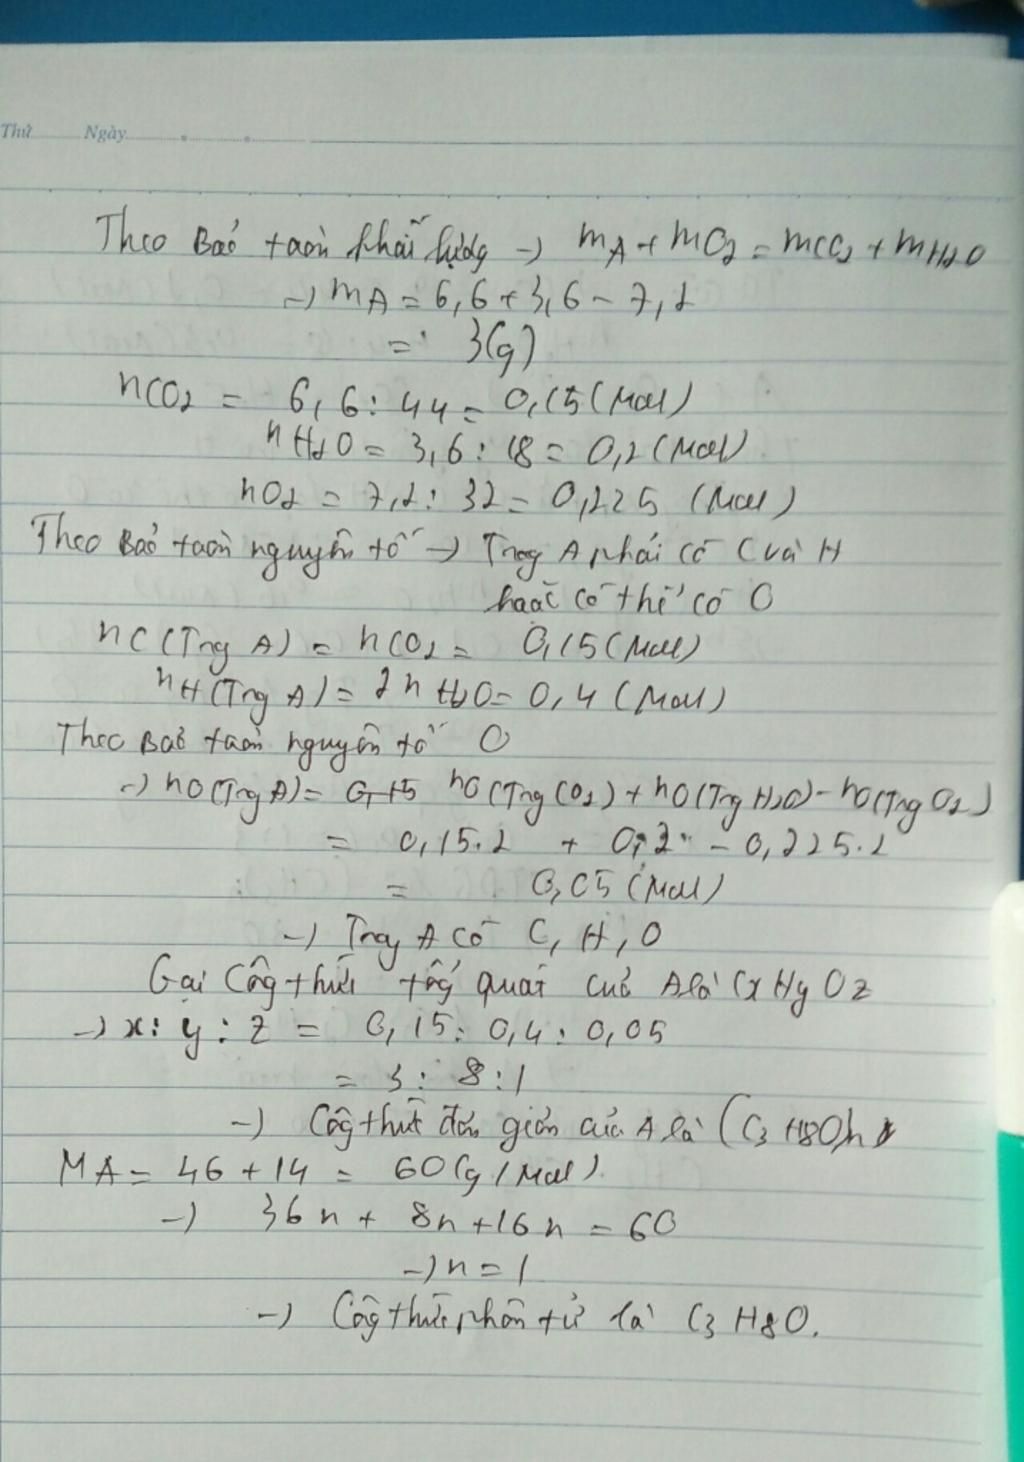 Thứ Ngày
Theo Bảo toàn khối lượng → mA + mO2 = mCO2 + mH2O
→ mA = 6,6 + 3,6 - 7,2
= 3(g)
nCO2 = 6,6 : 44 = 0,15 (Mol)
nH2O = 3,6 : 18 = 0,2 (Mol)
nO2 = 7,2 : 32 = 0,225 (Mol)
Theo Bảo toàn nguyên tố → Trog A phải có C và H
hoặc có thể có O
nC (Trog A) = nCO2 = 0,15 (Mol)
nH (Trog A) = 2nH2O = 0,4 (Mol)
Theo Bảo toàn nguyên tố O
→ nO (Trog A) = nO (Trog CO2) + nO (Trog H2O) - nO (Trog O2)
= 0,15.2 + 0,2 - 0,225.2
= 0,05 (Mol)
→ Trog A có C, H, O
Gọi Côg thức tổg quát của A là CxHyOz
→ x : y : z = 0,15 : 0,4 : 0,05
= 3 : 8 : 1
→ Côg thức đơn giản của A là (C3H8O)n
MA = 46 + 14 = 60 (g/Mol).
→ 36n + 8n + 16n = 60
→ n = 1
→ Côg thức phân tử là C3H8O.